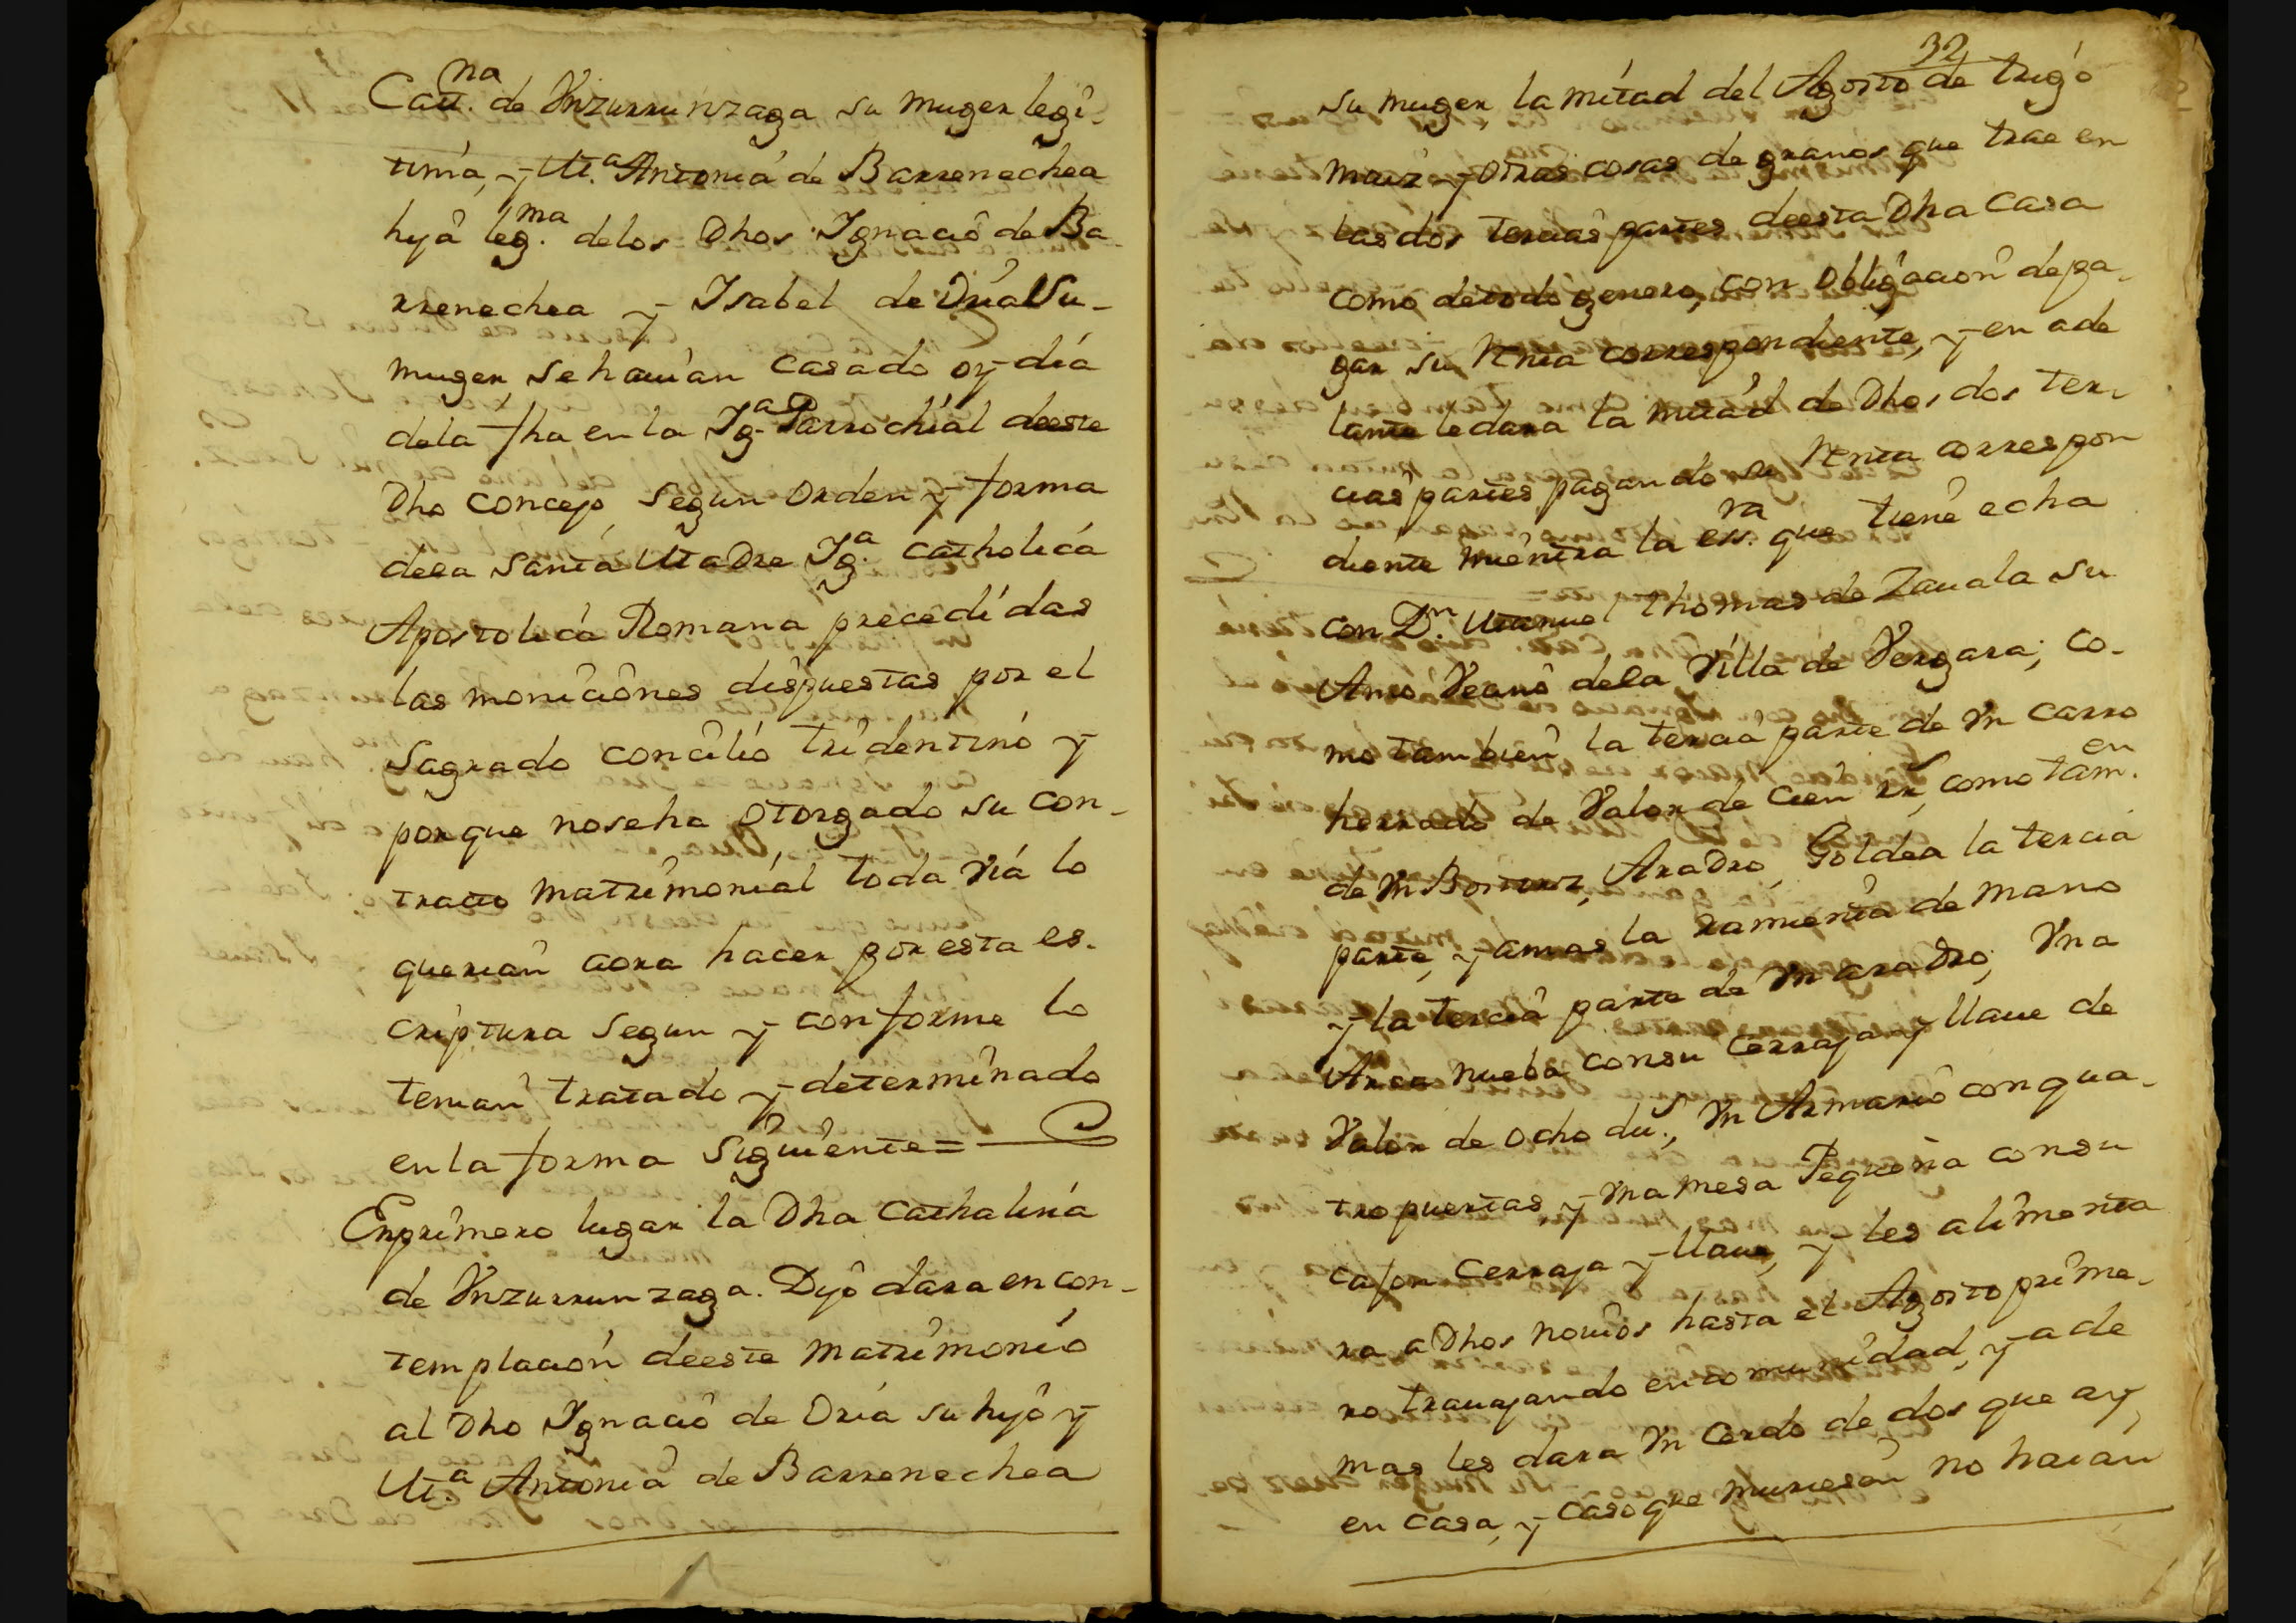 Catt.na de Vnzurrunzaga su muger legi-
tima, y M.a Antonia de Barrenechea
hija leg.ma delos Dhos Ignacio de Ba-
rrenechea y Isabel de Vrial su-
muger, se hauian casado oy dia
dela fha en la Ig.a Parrochial deeste
Dho concejo segun orden y forma
dela santa Madre Ig.a catholica
Apostolica Romana precedidas
las moniciones dispuestas por el
Sagrado concilio tridentino y
porque nose ha otorgado su con-
tracto matrimonial toda via lo
querian aora hacer por esta es-
criptura segun y conforme lo
tenian tratado y determinado
en la forma siguiente=
Enprimero lugar la Dha Cathalina
de Vnzurrunzaga. Dijo dara en con-
templacion deeste matrimonio
al Dho Ignacio de Oria su hijo y
M.a Antonia de Barrenechea
32
su muger la mitad del Agosto de trigo
maiz y otras cosas de granos que trae en
las dos tercias partes deesta Dha Casa
como detodo genero, con obligacion de pa-
gar su Renta correspondiente, y en ade
lante le dara la mitad de Dhos dos ter-
cias partes pagando su Renta correspon
diente mientra la ess.ra que tiene echa
con D.n Manuel thomas de Zauala su
Amo Vecino dela Villa de Vergara; co-
mo tambien la tercia parte de vn carro
herrado de Valor de cien rs, como tam.en
de vn Bostorz, Aradro, Goldea la tercia
parte, y amas la ramienta de mano
y la tercia parte de vn aradro; Vna
Arca nueba consu cerraja y llaue de
Valor de ocho du.s, vn Armario con qua-
tro puertas, y vna mesa Pequeña consu
cajon cerraja y llaue, y les alimenta
ra a Dhos nouios hasta el Agosto prime-
ro trauajando en comunidad, y ade
mas les dara vn cerdo de dos que ay
en casa, y caso que muriesen no haian